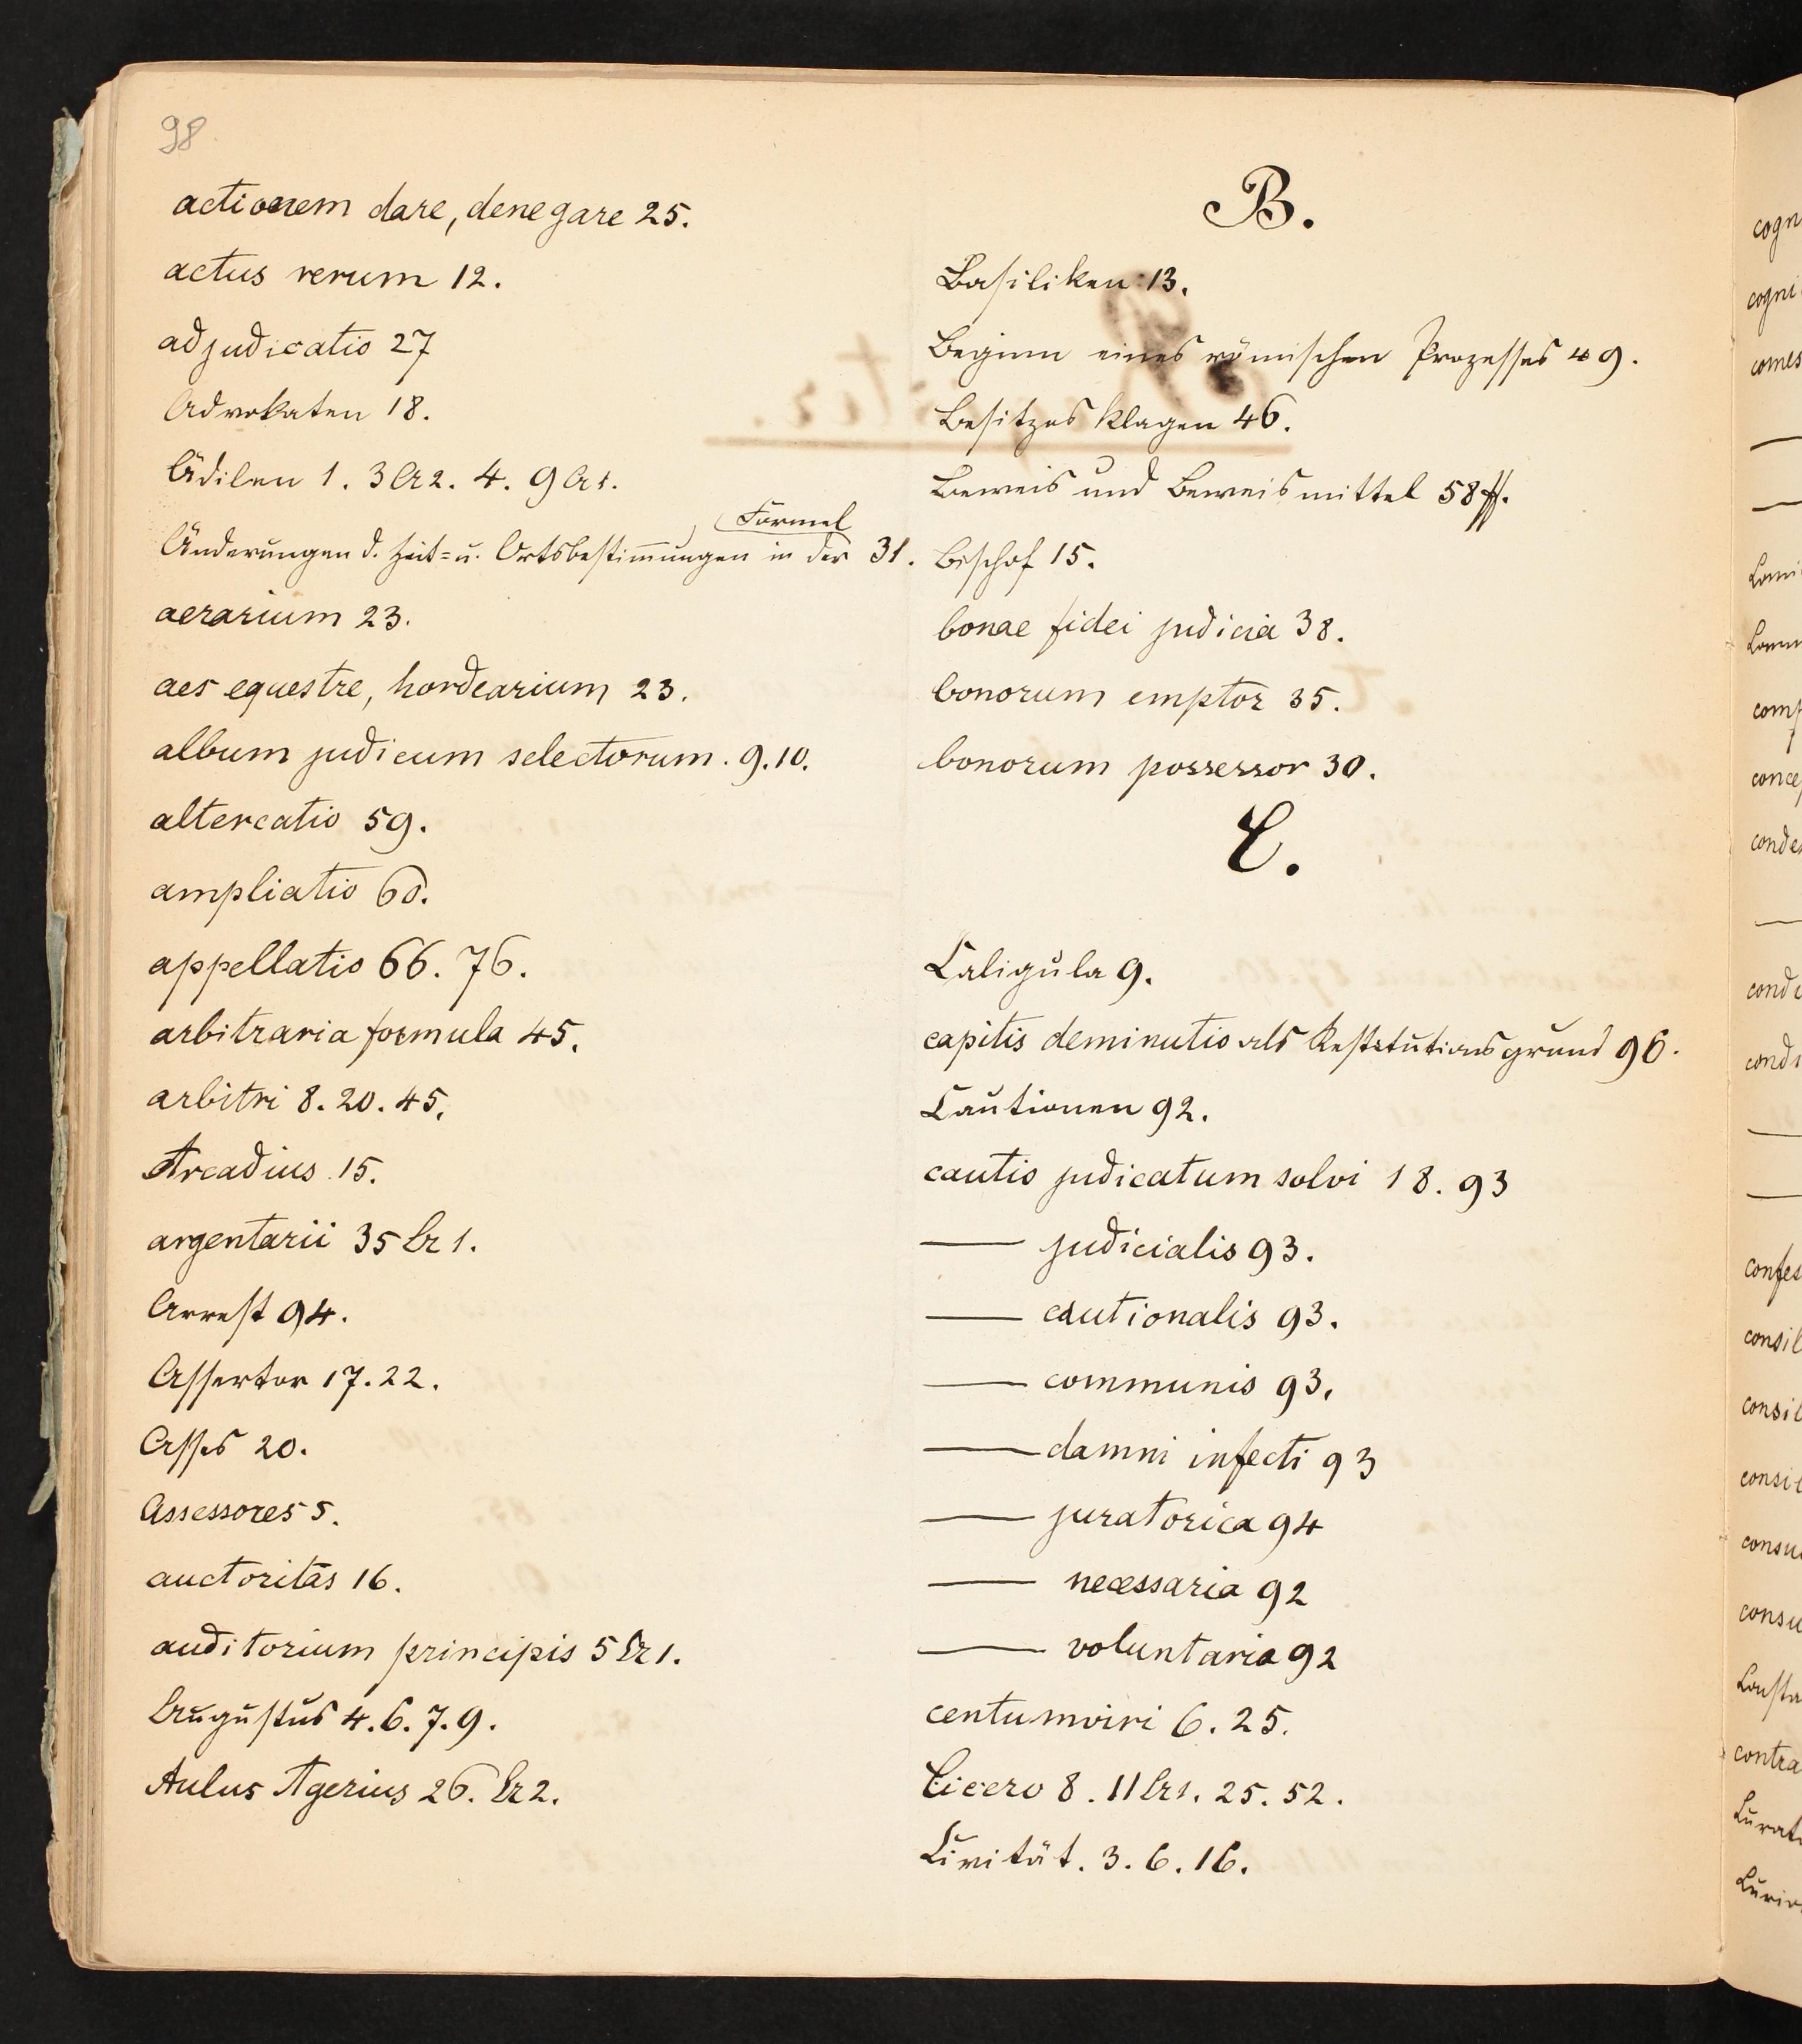 98
actionem dare, denegare 25.
actus rerum 12.
adjudicatio 27
Advokaten 18.
Ädilen 1. 3 A 2. 4. 9 A 1.
Formel
Änderungen d. Zeit= u. Ortsbestim̄ungen in der 31.
aerarium 23.
aes equestre, hordearium 23.
album judicum selectorum. 9. 10.
altercatio 59.
ampliatio 60.
appellatio 66. 76.
arbitraria formula 45.
arbitri 8. 20. 45.
Arcadius 15.
argentarii 35 A 1.
Arrest 94.
Assertor 17. 22.
Asses 20.
Assessores 5.
auctoritas 16.
auditorium principis 5 A 1.
Augustus 4. 6. 7. 9.
Aulus Agerius 26. A 2.
B.
Basiliken 13.
Beginn eines römischen Prozesses 49.
Besitzes klagen 46.
Beweis und Beweismittel 58 ff.
Bischof 15.
bonae fidei judicia 38.
bonorum emptor 35.
bonorum possessor 30.
C.
Caligula 9.
capitis deminutio als Restitutionsgrund 96.
Cautionen 92.
cautio judicatum solvi 18. 93
— judicialis 93.
— cautionalis 93.
— communis 93.
— damni infecti 93
— juratorica 94
— necessaria 92
— voluntaria 92
centumviri 6. 25.
Cicero 8. 11 A 1. 25. 52.
Civität. 3. 6. 16.